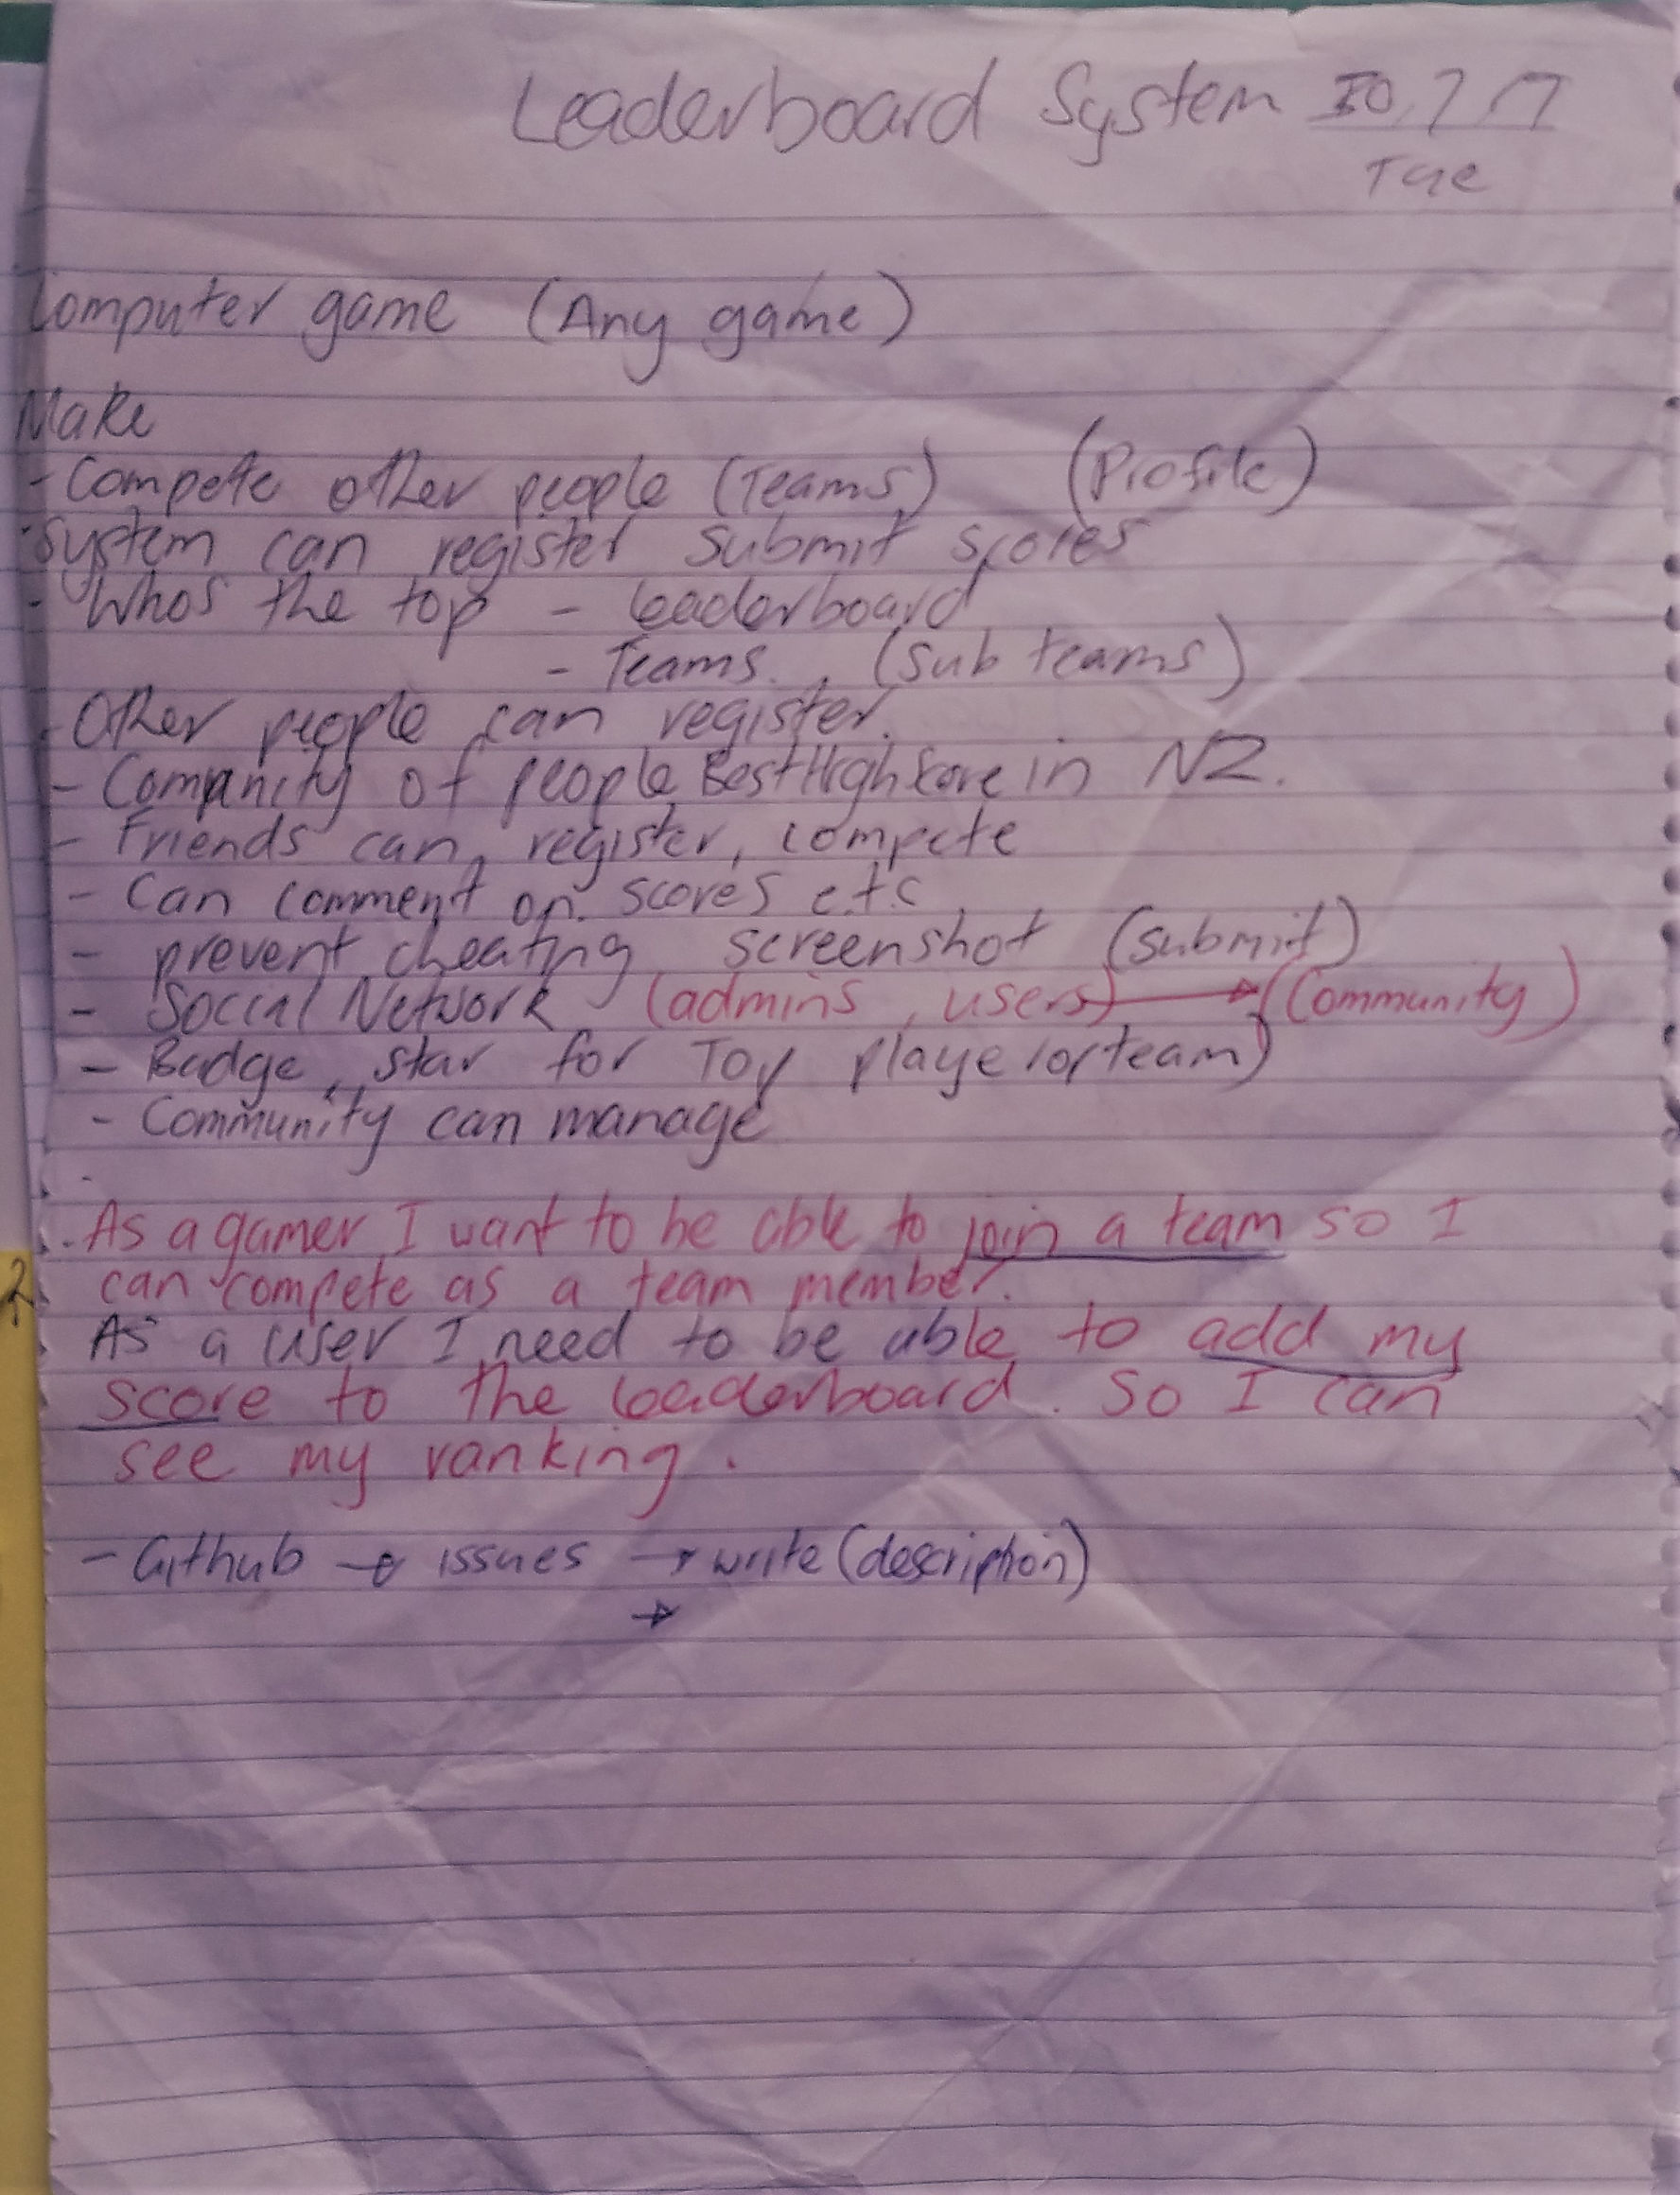 Leaderboard System
Tue
Computer game (Any game)
Make
- Compete other people (Teams) (Profile)
- System can register submit scores
- Whos the top - leaderboard
- Teams. (Sub teams)
- Other people can register.
- of people Best High Score in NZ.
- Friends can, register, compete
- Can comment on scores e.t.c
- prevent cheating screenshot (submit)
- Social Network (admins, users) → (Community)
- Badge, star for Top player (or team)
- Community can manage
-
- As a gamer I want to be able to join a team so I
can compete as a team member.
As a user I need to be able to add my
score to the leaderboard. So I can
see my ranking.
- Github → issues → write (description)
→
2